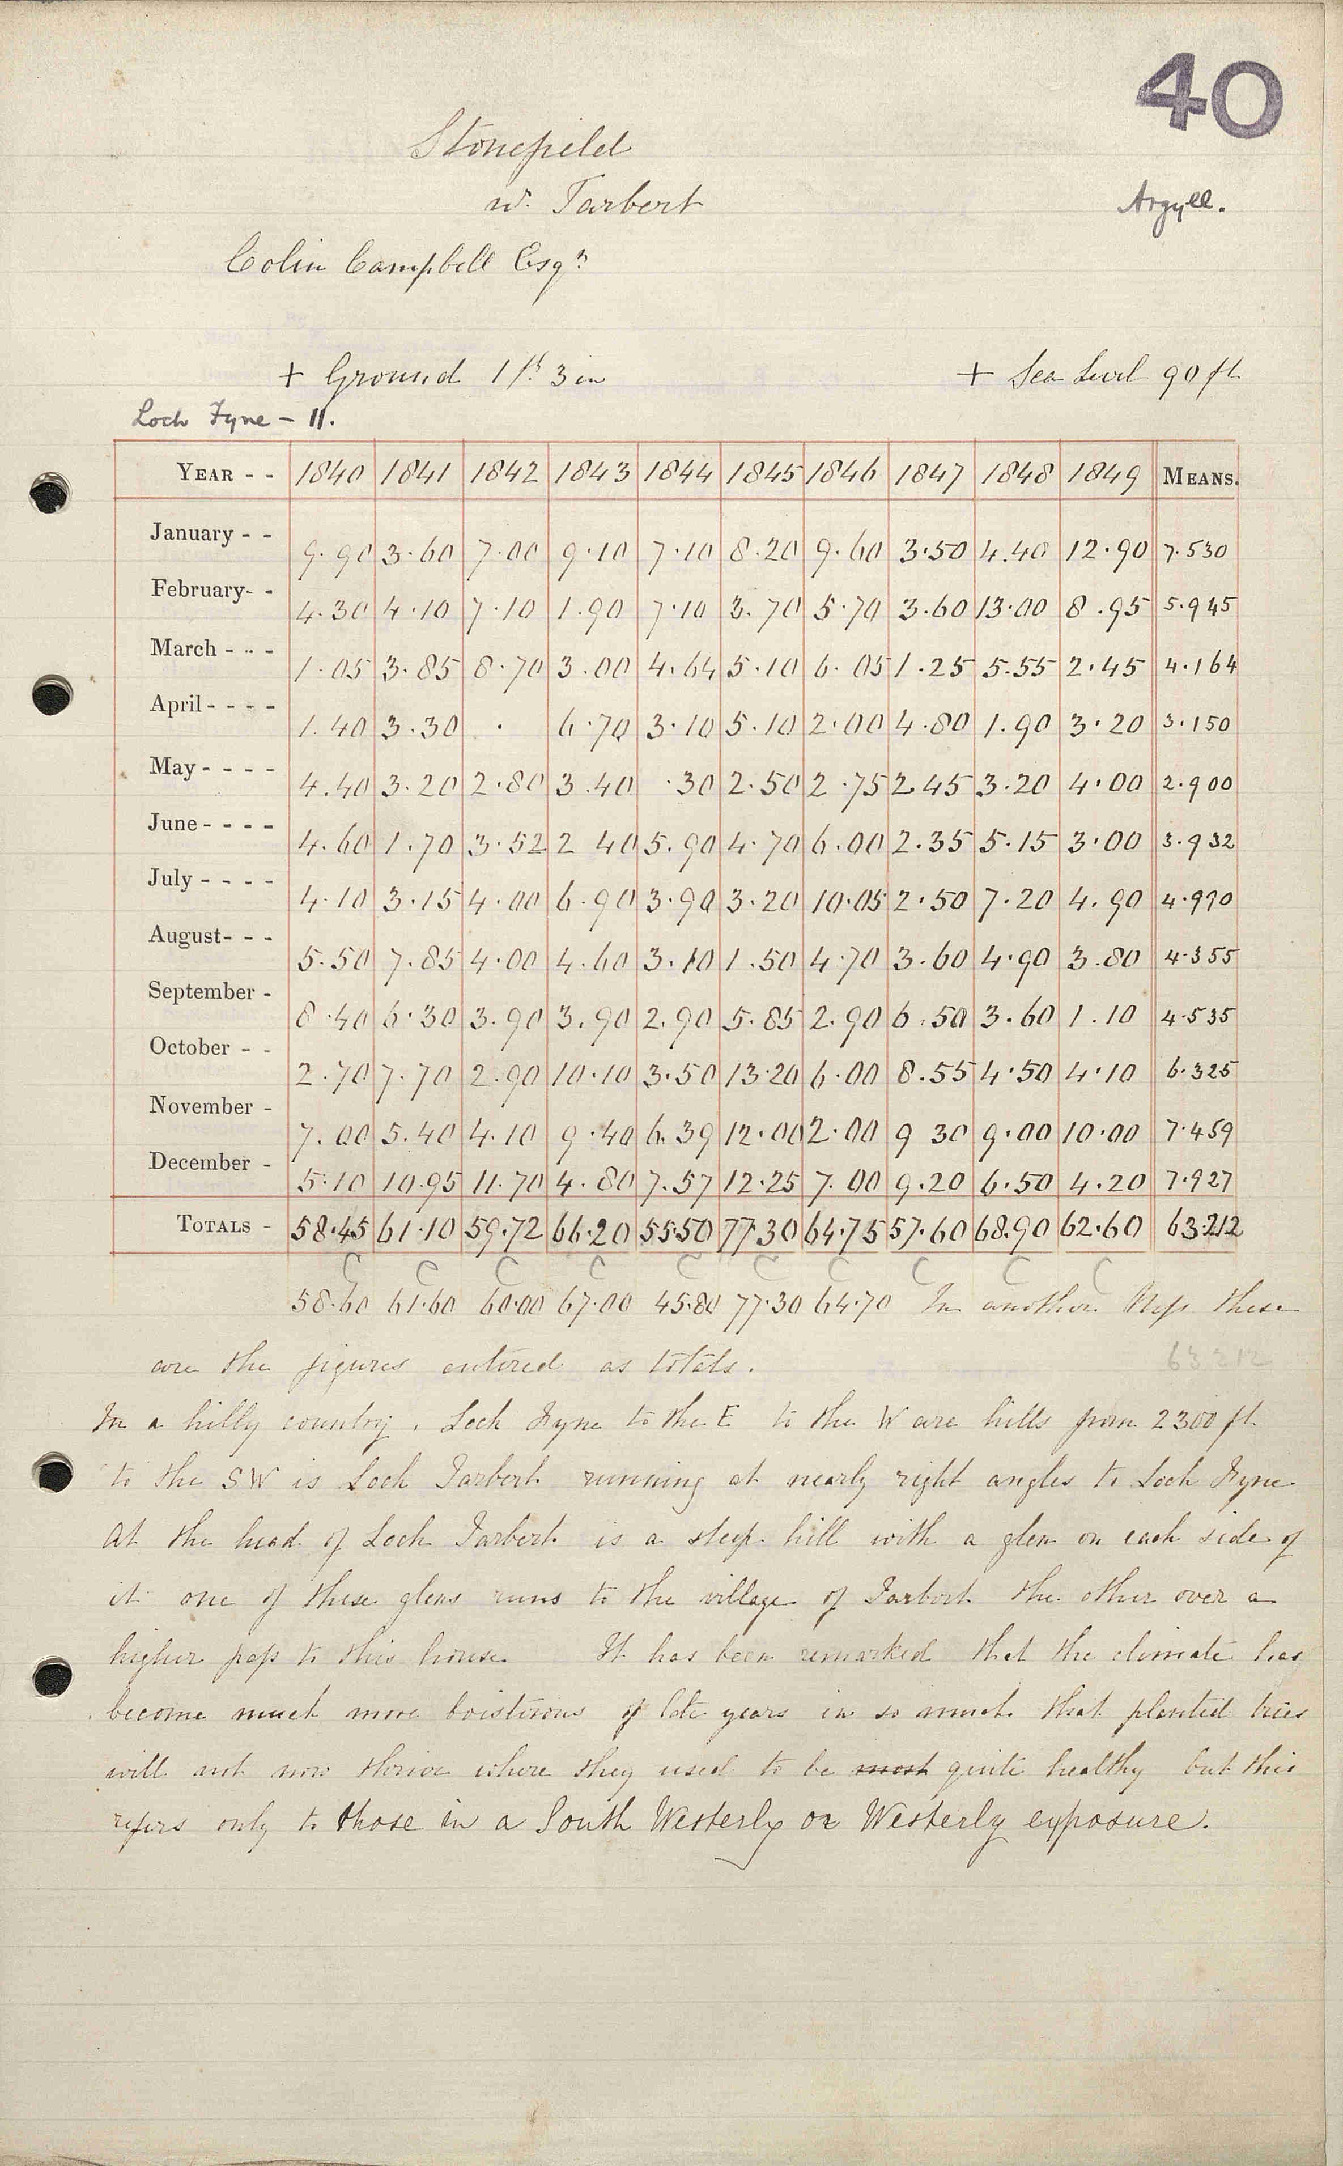 40
Stonefield
nr. Tarbert
Argyll.
Colin Campbell Esqr
+ Ground 1 ft 3 in + Sea Level 90 ft
Loch Fyne - 11.
YEAR - - 1840 1841 1842 1843 1844 1845 1846 1847 1848 1849 MEANS.
January - - 9.90 3.60 7.00 9.10 7.10 8.20 9.60 3.50 4.40 12.90 7.530
February- - 4.30 4.10 7.10 1.90 7.10 3.70 5.70 3.60 13.00 8.95 5.945
March - - - 1.05 3.85 8.70 3.00 4.64 5.10 6.05 1.25 5.55 2.45 4.164
April - - - - 1.40 3.30 . 6.70 3.10 5.10 2.00 4.80 1.90 3.20 3.150
May - - - - 4.40 3.20 2.80 3.40 .30 2.50 2.75 2.45 3.20 4.00 2.900
June - - - - 4.60 1.70 3.52 2 40 5.90 4.70 6.00 2.35 5.15 3.00 3.932
July - - - - 4.10 3.15 4.00 6.90 3.90 3.20 10.05 2.50 7.20 4.90 4.990
August- - - 5.50 7.85 4.00 4.60 3.10 1.50 4.70 3.60 4.90 3.80 4.355
September - 8.40 6.30 3.90 3.90 2.90 5.85 2.90 6.50 3.60 1.10 4.535
October - - 2.70 7.70 2.90 10.10 3.50 13.20 6.00 8.55 4.50 4.10 6.325
November - 7.00 5.40 4.10 9.40 6.39 12.00 2.00 9 30 9.00 10.00 7.459
December - 5.10 10.95 11.70 4.80 7.57 12.25 7.00 9.20 6.50 4.20 7.927
TOTALS - 58.45 61.10 59.72 66.20 55.50 77.30 64.75 57.60 68.90 62.60 63.212
C C C C C C C C C C
58.60 61.60 60.00 67.00 45.80 77.30 64.70 In another Mss these
are the figures entered as totals. 63 212
In a hilly country. Loch Fyne to the E to the W are hills from 2300 ft
to the SW is Loch Tarbert running at nearly right angles to Loch Fyne
At the head of Loch Tarbert is a steep hill with a glen on each side of
it one of these glens runs to the village of Tarbert the other over a
higher pass to this house. It has been remarked that the climate has
become much more boisterous of late years in so much that planted trees
will not now thrive where they used to be most quite healthy but this
refers only to those in a South Westerly or Westerly exposure.